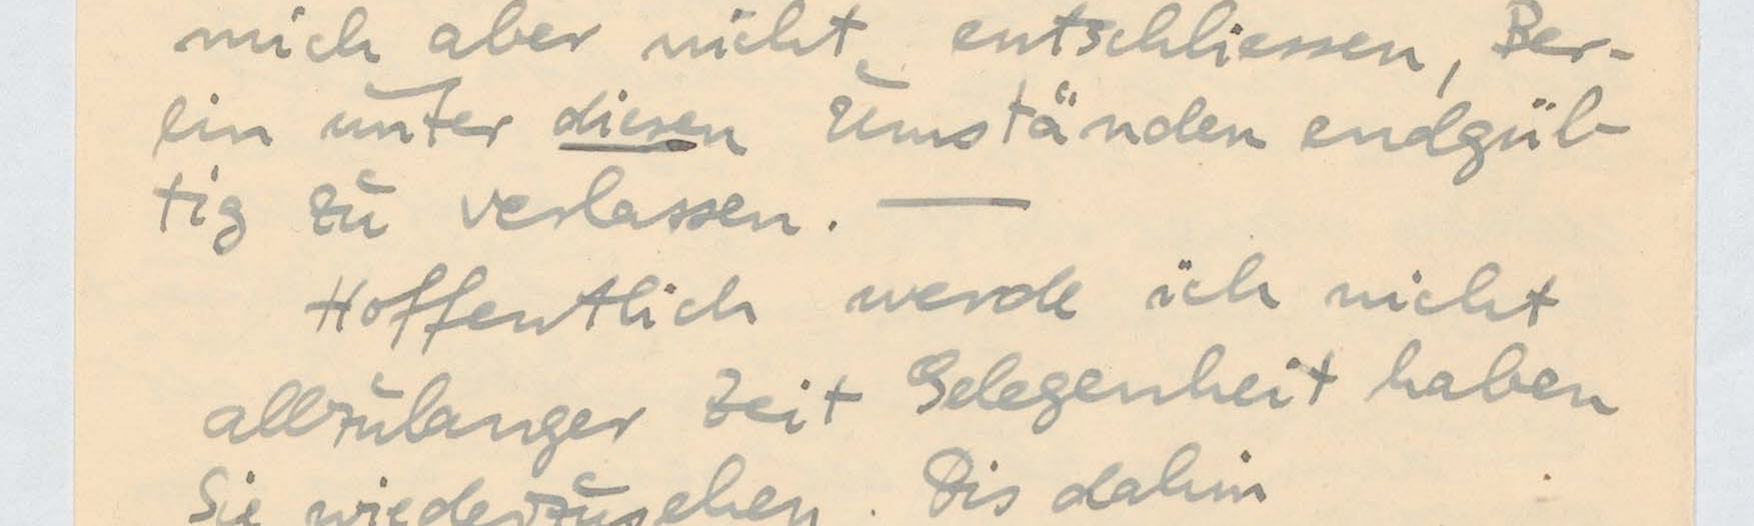 mich aber nicht, entschliessen, Ber-
lin unter diesen Umständen endgül-
tig zu verlassen. —
Hoffentlich werde ich nicht
allzulanger Zeit Gelegenheit haben
Sie wiederzusehen. Bis dahin